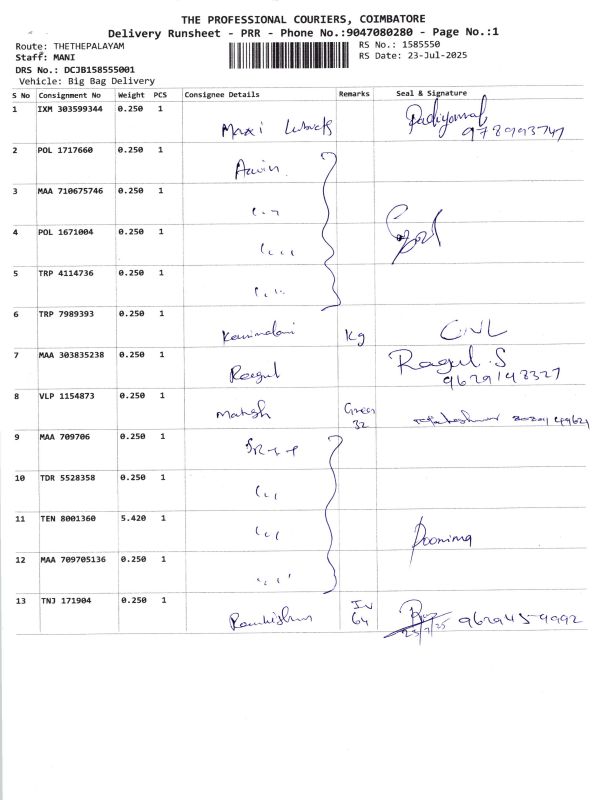 THE PROFESSIONAL COURIERS, COIMBATORE
Delivery Runsheet - PRR - Phone No.:9047080280 - Page No.:1
Route: THETHEPALAYAM
RS No.: 1585550
Staff: MANI
RS Date: 23-Jul-2025
DRS No.: DCJB158555001
Vehicle: Big Bag Delivery
S No Consignment No Weight PCS Consignee Details Remarks Seal & Signature
1 IXM 303599344 0.250 1
2 POL 1717660 0.250 1
3 MAA 710675746 0.250 1
4 POL 1671004 0.250 1
5 TRP 4114736 0.250 1
6 TRP 7989393 0.250 1 Kg
7 MAA 303835238 0.250 1 Ragul Ragul.S
9629148327
8 VLP 1154873 0.250 1 Green
32
9 MAA 709706 0.250 1
10 TDR 5528358 0.250 1
11 TEN 8001360 5.420 1 Poonima
12 MAA 709705136 0.250 1
13 TNJ 171904 0.250 1 64 9629459992
23/7/25